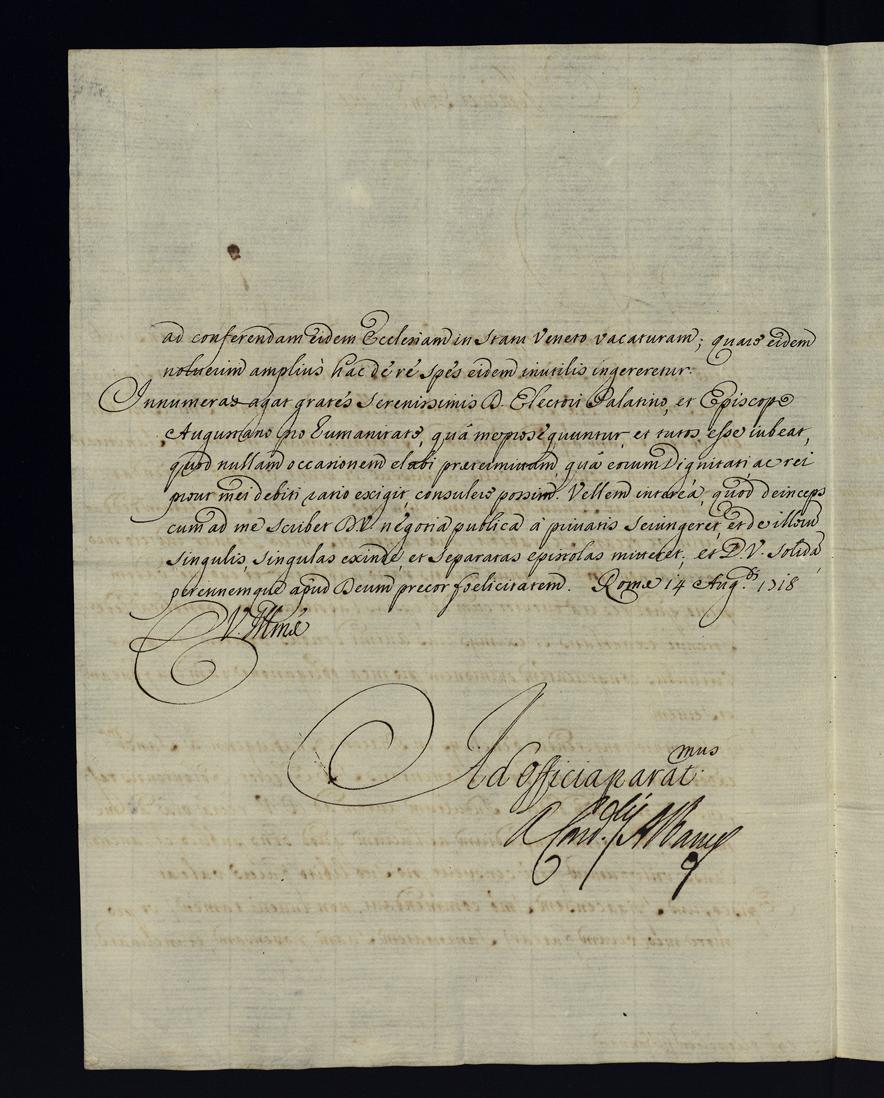 ad conferendam eidem Ecclesiam in Statu Veneto vacaturam; quare eidem
notuerim ampliùs hac de rè spès eidem inutilis ingereretur.
Innumeras agat gratès Serenissimis D. Electori Palatino, et Episcopo
Augustano pro humanitate, quâ me prosequuntur, et tutos esse iubeat,
quod nullam occasionem elabi pretermittam, quâ eorum Dignitati, ac rei
prout mei debiti ratio exigit, consulere possim. Vellem intereà, quòd deinceps
cum ad me scribet D.V. negotia publica à privatis seiungeret, et de illorum
singulis, singulas exinde, et separatas epistolas mitteret; et D.V. solidã,
perennemque apud Deum precor foelicitatem. Romæ 14 Aug.ti 1718
D.V. Illmæ
Ad officia parat.mus
A. Card.lis Albanus